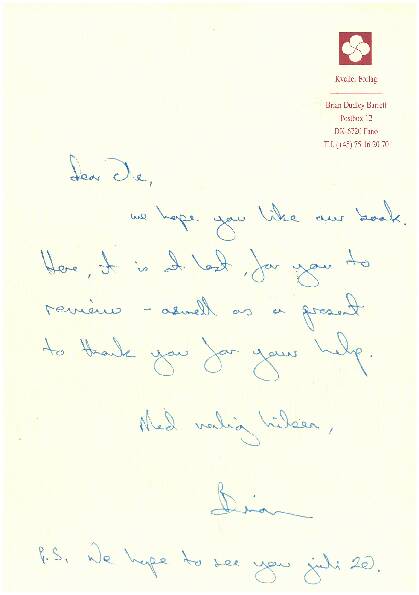 Kvaller Forlag
Brian Dudley Barrett
Postbox 12
DK-6720 Fanø
Tlf. (+45) 75 16 20 70
Dear Ole,
we hope you like our book.
Here, it is at last, for you to
review - aswell as a present
to thank you for your help.
Med venlig hilsen,
Brian
P.S. We hope to see you juli 20.